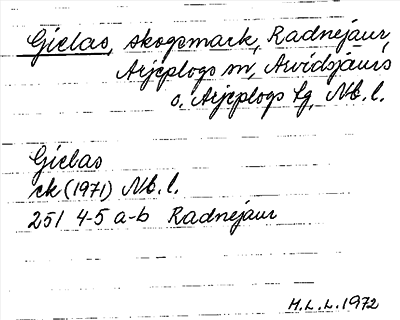 Gielas, skogsmark, Radnejaur,
Arjeplogs sn, Arvidsjaurs
o. Arjeplogs tg, Nb. l.
Gielas
ek (1971) Nb. l.
25I 4-5 a-b Radnejaur
H.L.L. 1972